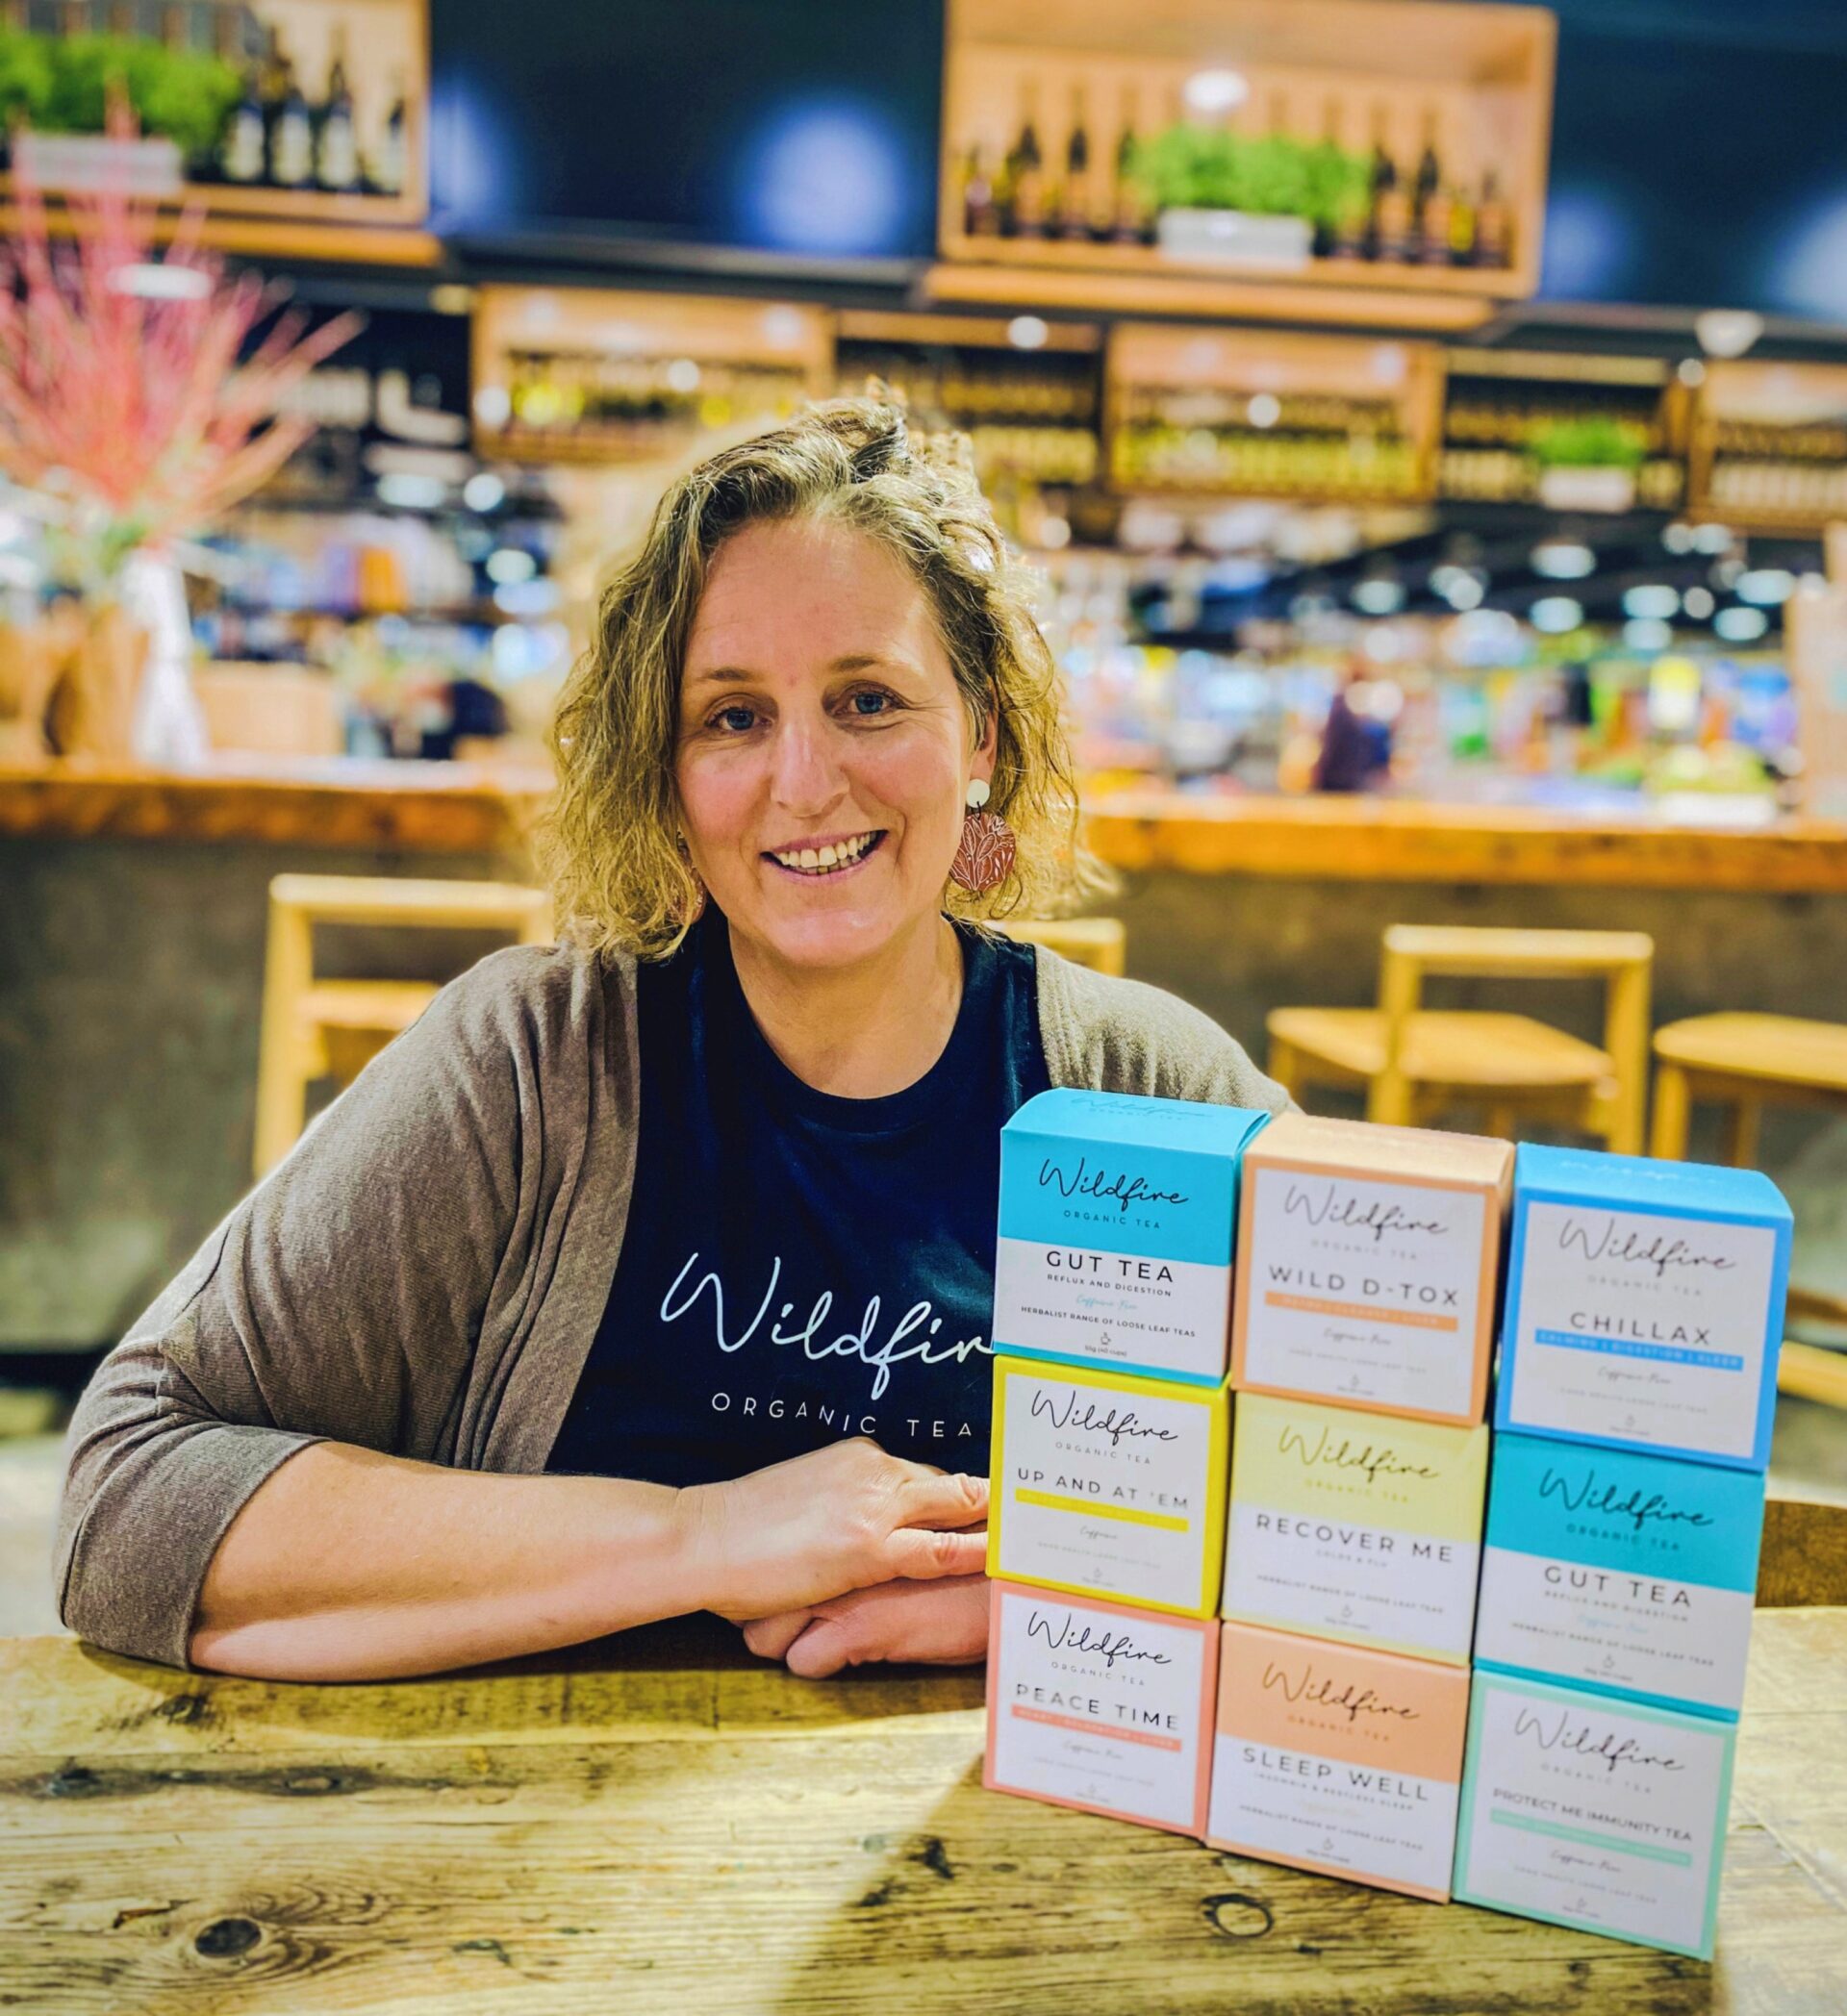 Wildfire
ORGANIC TEA
GUT TEA
REFLUX AND DIGESTION
Caffeine Free
HERBALIST RANGE OF LOOSE LEAF TEAS
50g (40 cups)
Wildfire
ORGANIC TEA
WILD D-TOX
Caffeine Free
Wildfire
ORGANIC TEA
CHILLAX
CALMING | DIGESTION | SLEEP
Caffeine Free
Wildfir
ORGANIC TEA
Wildfire
ORGANIC TEA
UP AND AT 'EM
Caffeine
Wildfire
ORGANIC TEA
RECOVER ME
COLDS & FLU
HERBALIST RANGE OF LOOSE LEAF TEAS
Wildfire
ORGANIC TEA
GUT TEA
REFLUX AND DIGESTION
Caffeine Free
HERBALIST RANGE OF LOOSE LEAF TEAS
Wildfire
ORGANIC TEA
PEACE TIME
Caffeine Free
Wildfire
ORGANIC TEA
SLEEP WELL
INSOMNIA & RESTLESS SLEEP
HERBALIST RANGE OF LOOSE LEAF TEAS
Wildfire
ORGANIC TEA
PROTECT ME IMMUNITY TEA
Caffeine Free